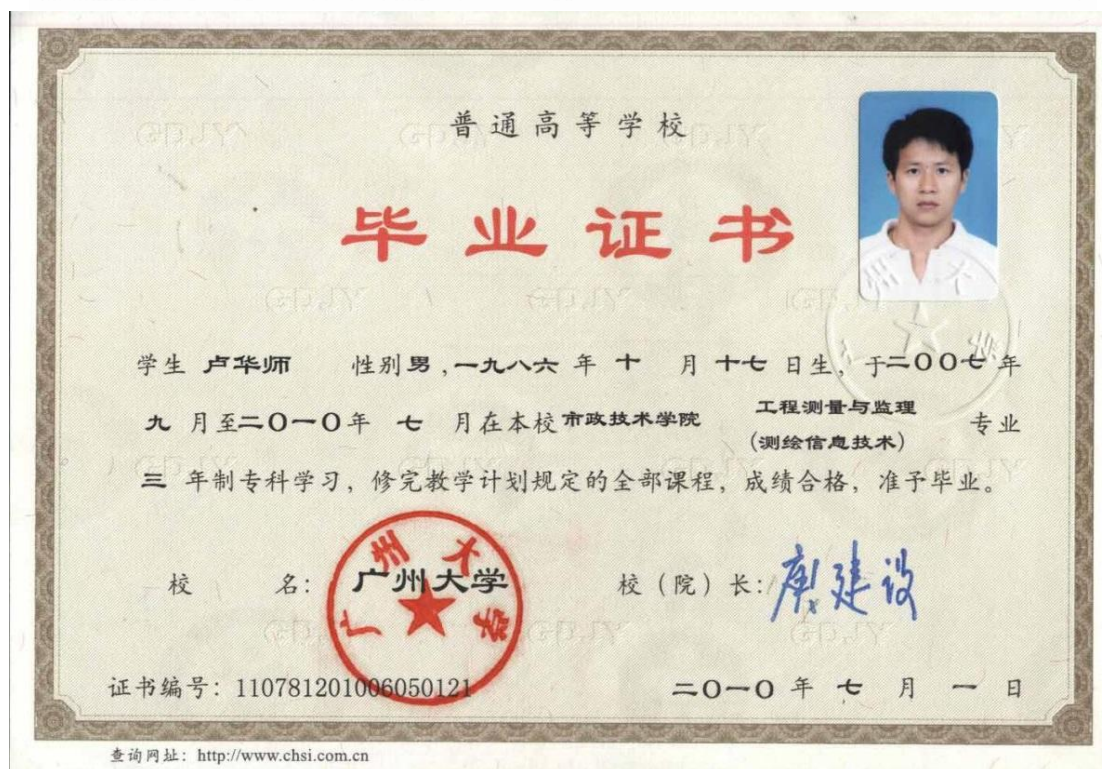 普通高等学校
毕业证书
学生 卢华师 性别男,一九八六 年 十 月 十七 日生, 于二〇〇七年
九 月至二〇一〇年 七 月在本校 市政技术学院 工程测量与监理 专业
(测绘信息技术)
三 年制专科学习, 修完教学计划规定的全部课程, 成绩合格, 准予毕业。
校 名: 广州大学 校(院)长: 庾建设
广州大学
证书编号: 110781201006050121 二〇一〇 年 七 月 一 日
查询网址: http://www.chsi.com.cn